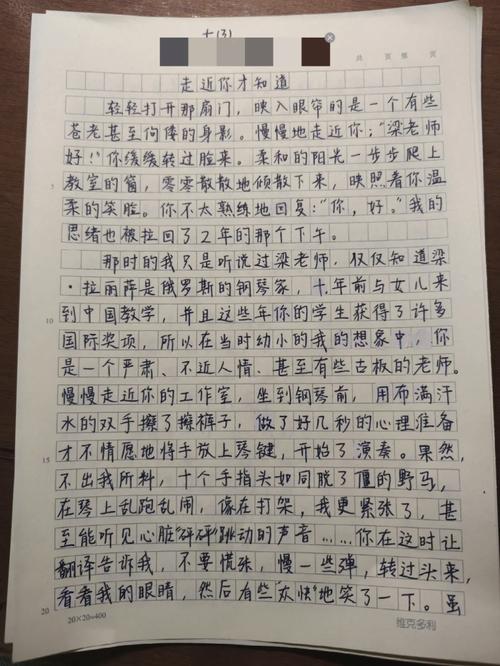 七(3)
共 页 第 页
走近你才知道
轻轻打开那扇门，映入眼帘的是一个有些
苍老甚至佝偻的身影。慢慢地走近你；"梁老师
好！"你缓缓转过脸来。柔和的阳光一步步爬上
教室的窗，零零散散地倾散下来，映照着你温
柔的笑脸。你不太熟练地回复："你，好。"我的
思绪也被拉回了2年的那个下午。
那时的我只是听说过梁老师，仅仅知道梁
·拉丽萍是俄罗斯的钢琴家，十年前与女儿来
到中国教学，并且这些年你的学生获得了许多
国际奖项，所以在当时幼小的我的想象中，你
是一个严肃、不近人情、甚至有些古板的老师。
慢慢走近你的工作室，坐到钢琴前，用布满汗
水的双手擦了擦裤子，做了好几秒的心理准备
才不情愿地将手放上琴键，开始了演奏。果然，
不出我所料，十个手指头如同脱了僵的野马，
在琴上乱跑乱闹，像在打架，我更紧张了，甚
至能听见心脏"砰砰"跳动的声音……你在这时让
翻译告诉我，不要慌张，慢一些弹，转过头来，
看看我的眼睛，然后有些"欢快"地笑了一下。虽
5
10
15
20
20×20=400
维克多利